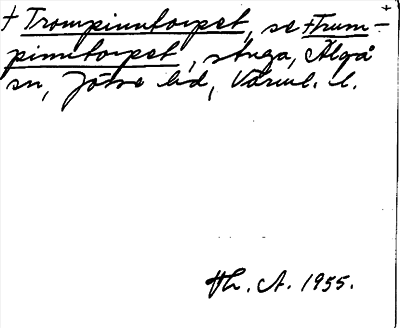 † Trompinntorpet, se † Trum-
pinntorpet, stuga, Älgå
sn, Jösse hd, Värml. l.
Hh. A. 1955.